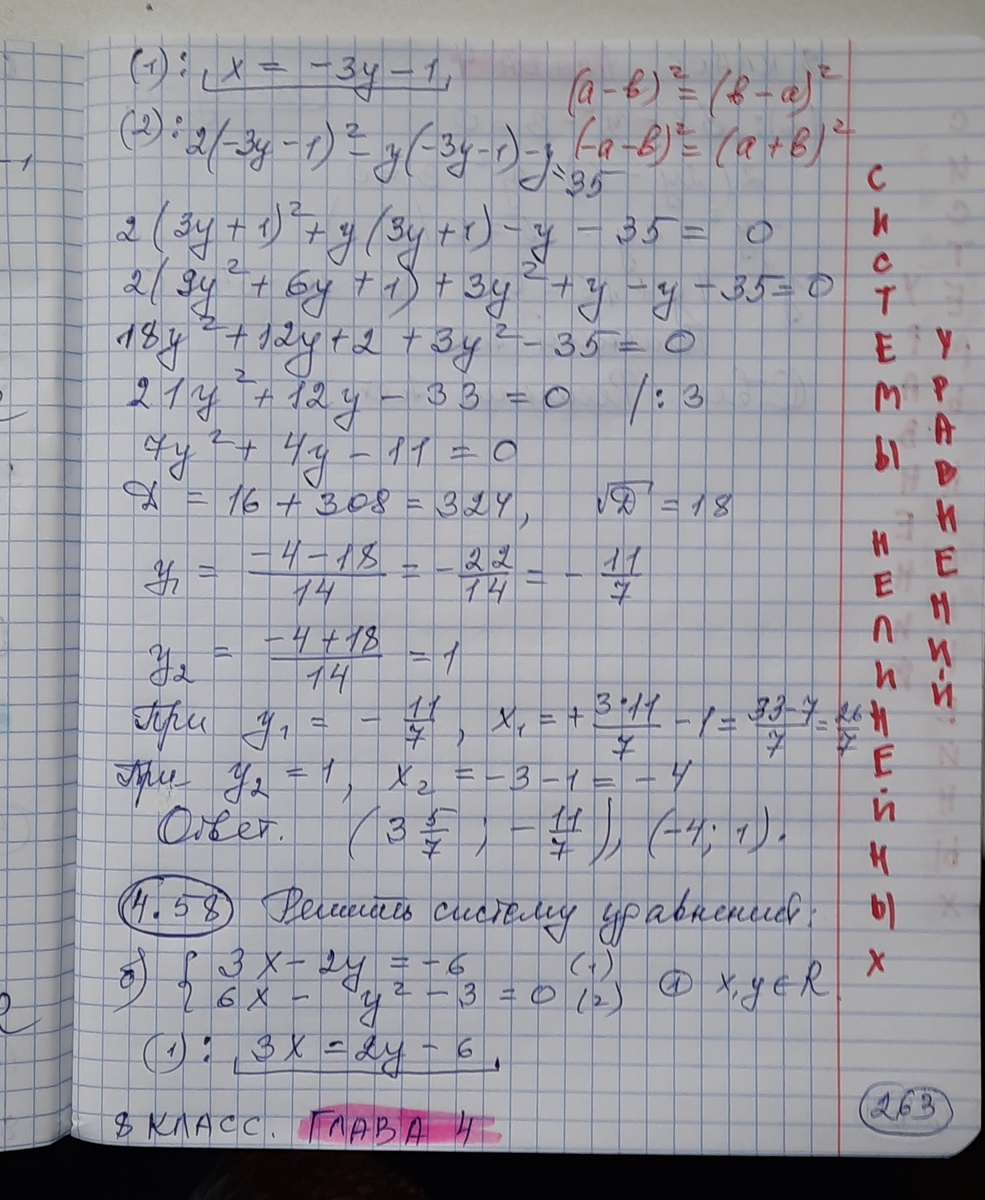 (1): x = -3y - 1,
(a-в)² = (в-а)²
(2): 2(-3y-1)² - y(-3y-1) - y = 35
(-а-в)² = (а+в)²
2(3y+1)² + y(3y+1) - y - 35 = 0
2(9y² + 6y + 1) + 3y² + y - y - 35 = 0
18y² + 12y + 2 + 3y² - 35 = 0
21y² + 12y - 33 = 0 /:3
7y² + 4y - 11 = 0
D = 16 + 308 = 324, √D = 18
y₁ = (-4-18)/14 = -22/14 = -11/7
y₂ = (-4+18)/14 = 1
При y₁ = -11/7, x₁ = +3·11/7 - 1 = (33-7)/7 = 26/7
При y₂ = 1, x₂ = -3-1 = -4
Ответ. (3 5/7; -11/7), (-4; 1).
4.58 Решить систему уравнений:
б) { 3x - 2y = -6 (1)
6x - y² - 3 = 0 (2) x, y ∈ R
(1): 3x = 2y - 6,
8 КЛАСС. ГЛАВА 4
263
СИСТЕМЫ НЕЛИНЕЙНЫХ
УРАВНЕНИЙ